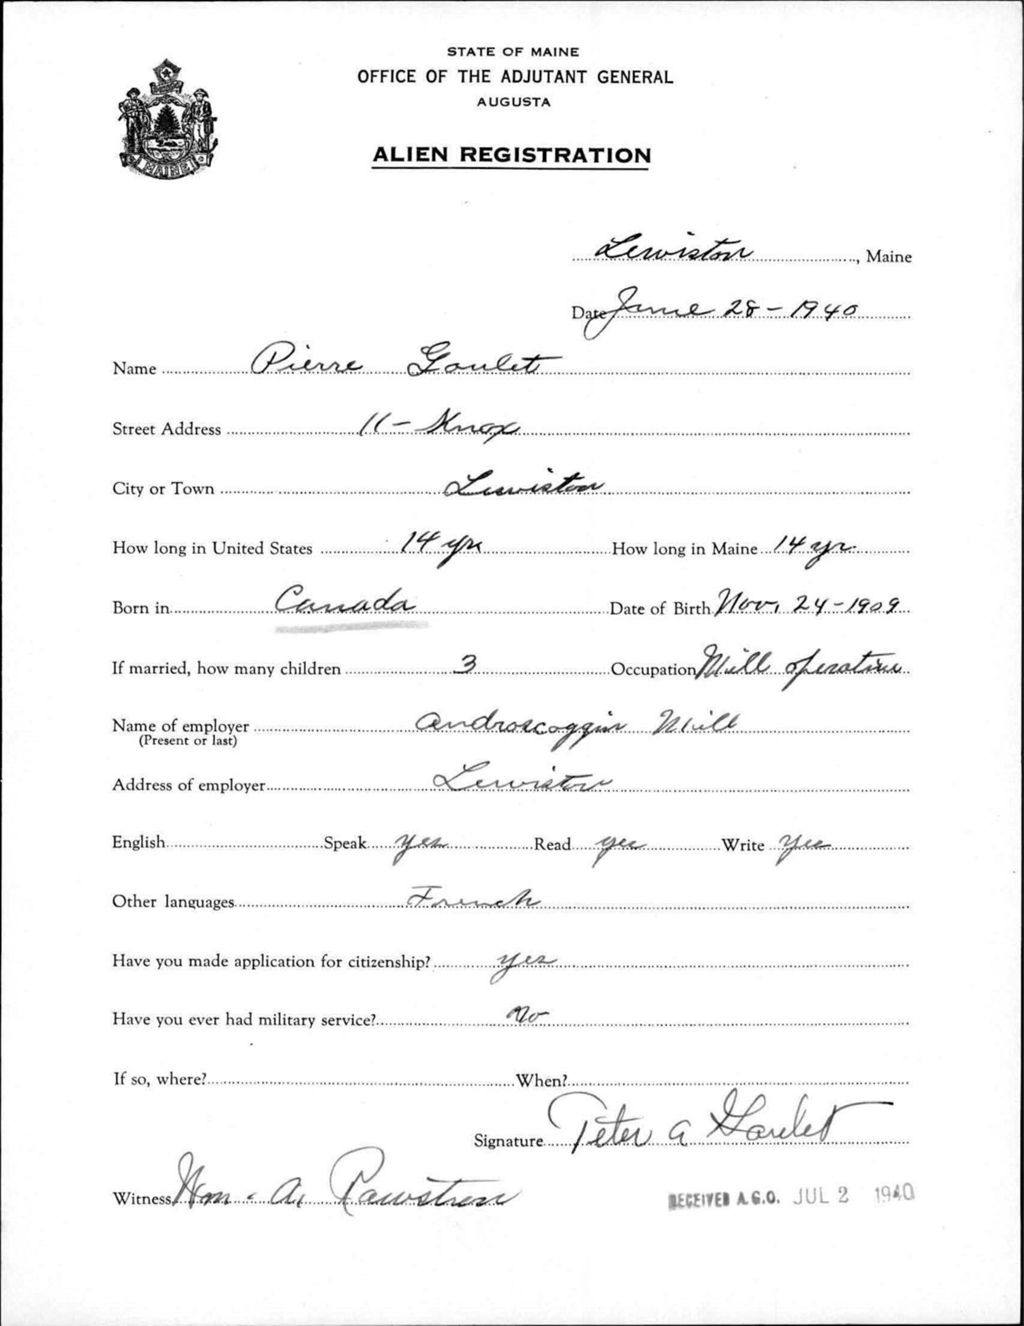 STATE OF MAINE
OFFICE OF THE ADJUTANT GENERAL
AUGUSTA
ALIEN REGISTRATION
MAINE
Lewiston, Maine
Date June 28-1940
Name Pierre Goulet
Street Address 11- Knox
City or Town Lewiston
How long in United States 14 yrs How long in Maine 14 yr.
Born in Canada Date of Birth Nov. 24-1909
If married, how many children 3 Occupation Mill operative
Name of employer Androscoggin Mill
(Present or last)
Address of employer Lewiston
English Speak yes Read yes Write Yes
Other languages French
Have you made application for citizenship? yes
Have you ever had military service? No
If so, where? When?
Signature Peter A Goulet
Witness Wm. A.
RECEIVED A.G.O. JUL 2 1940